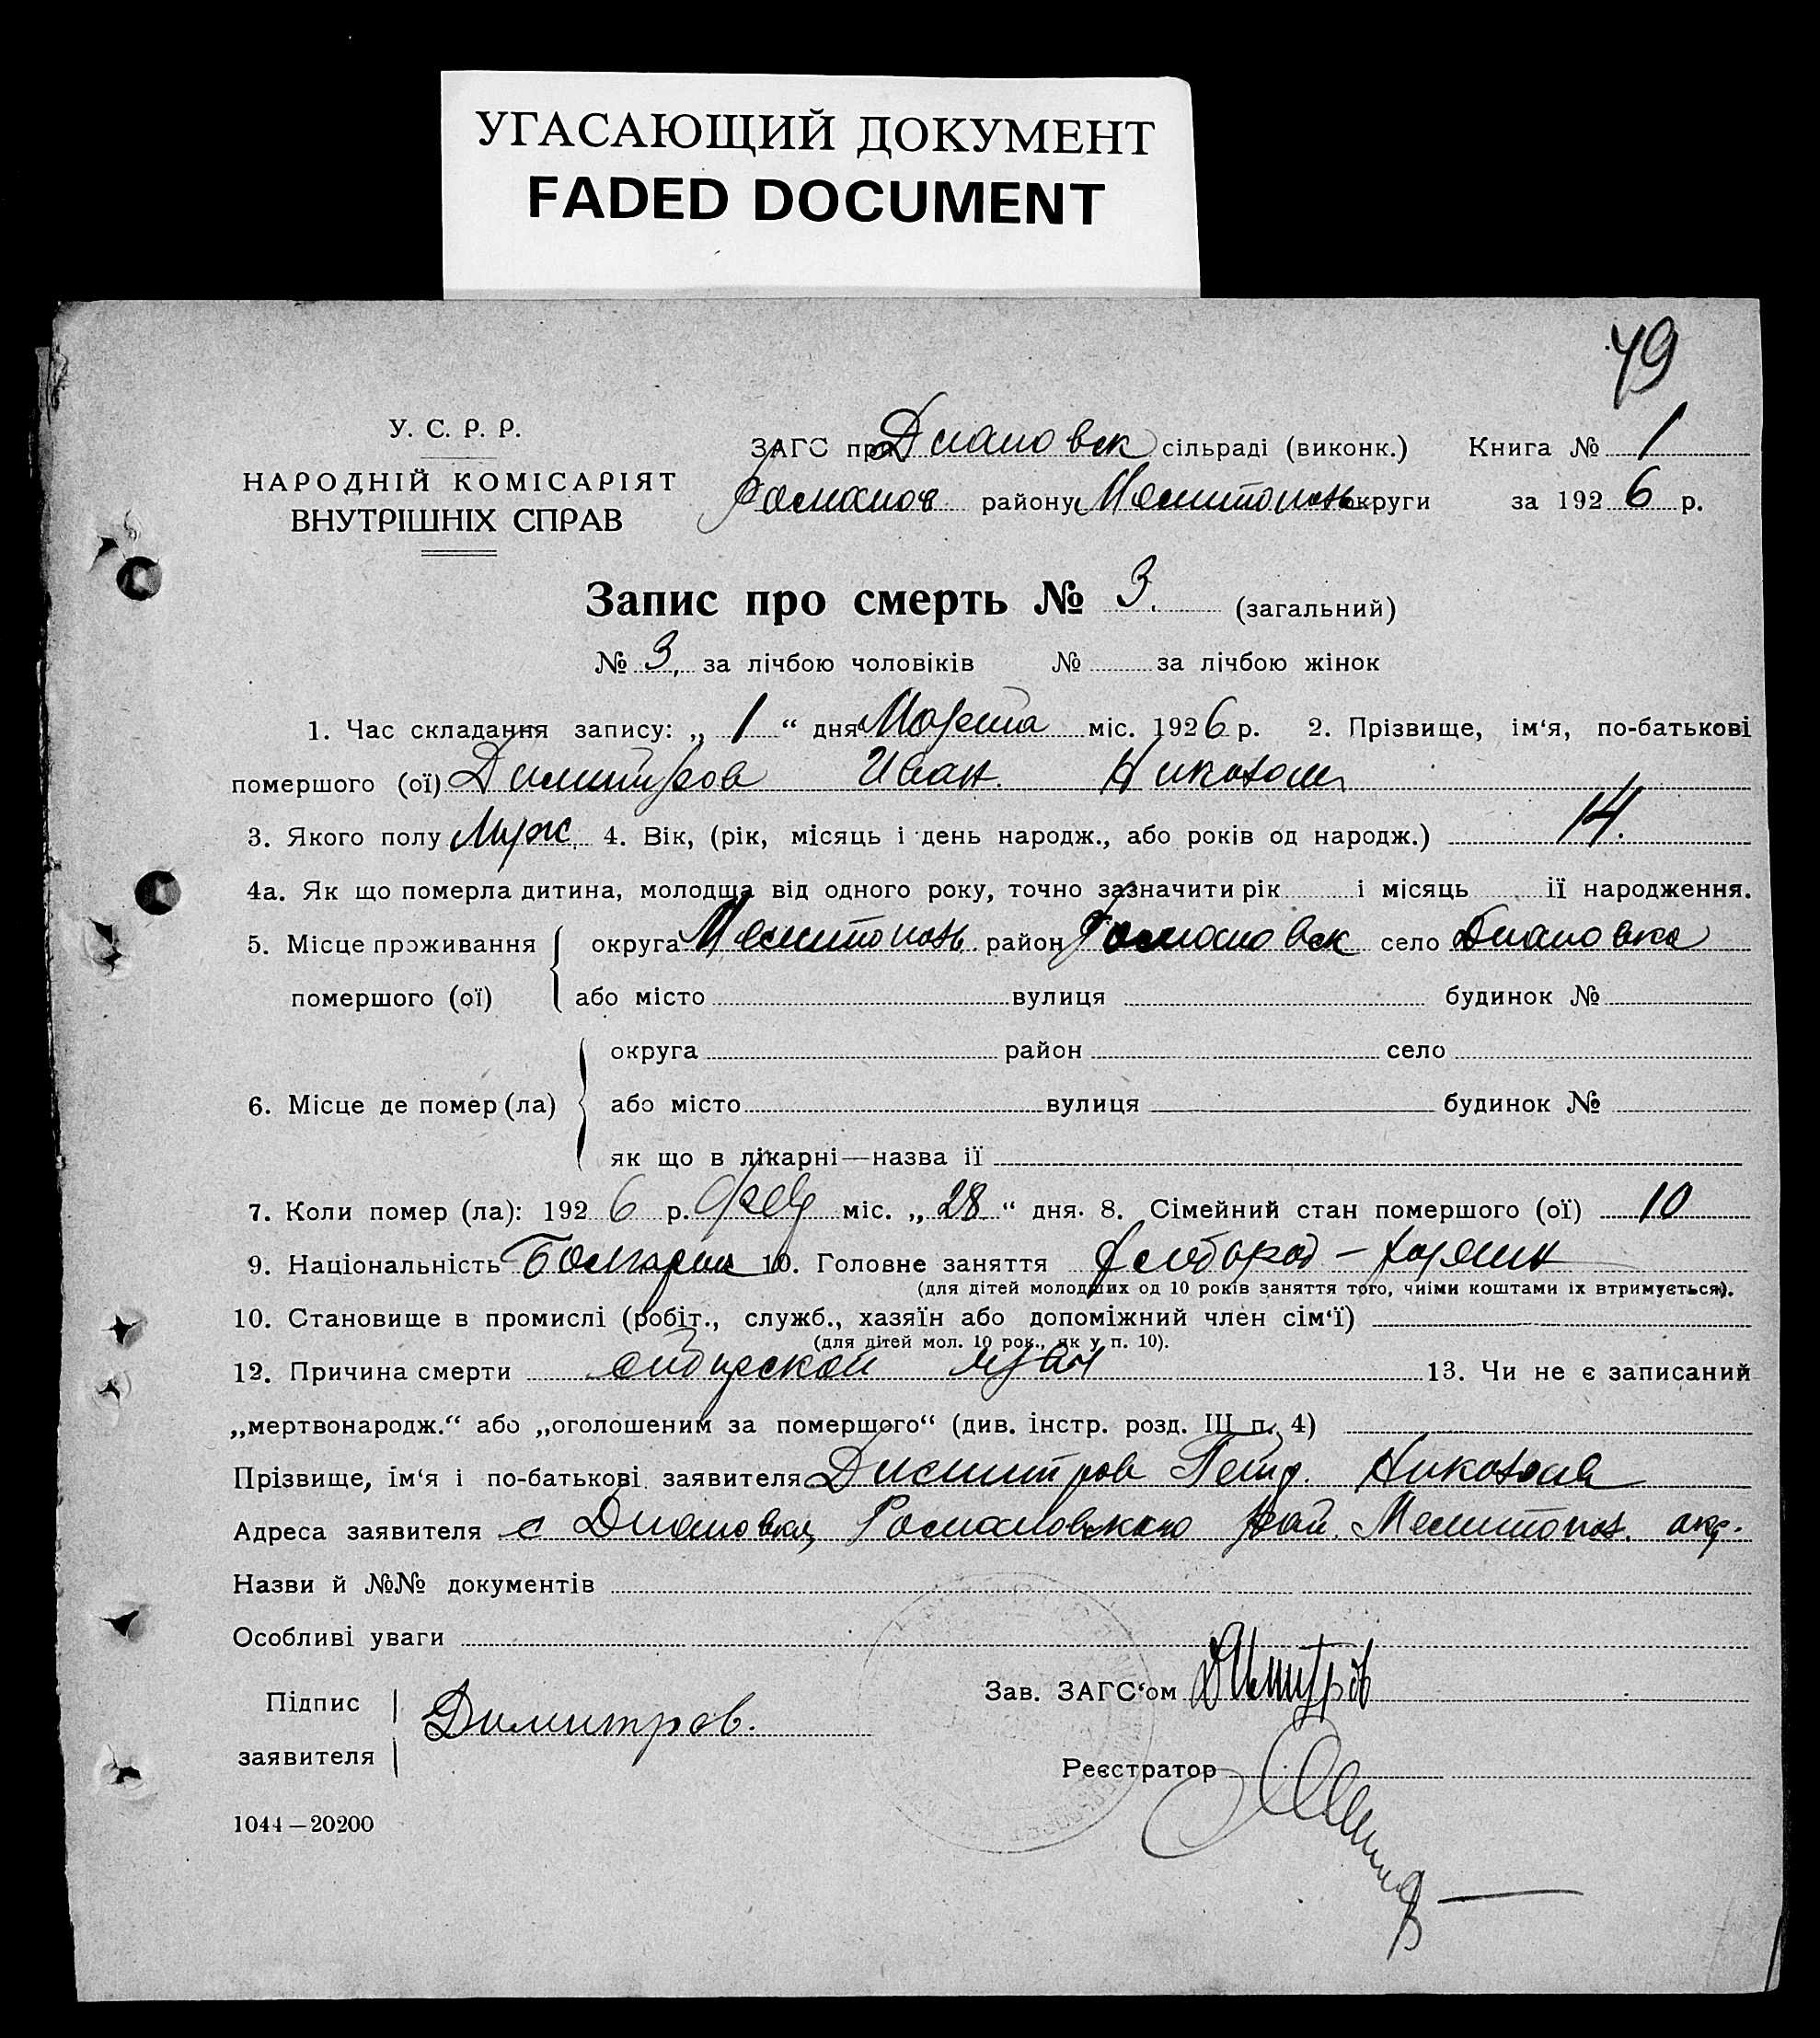 УГАСАЮЩИЙ ДОКУМЕНТ
FADED DOCUMENT
49
У. С. Р. Р.
НАРОДНІЙ КОМІСАРІЯТ
ВНУТРІШНІХ СПРАВ
ЗАГС при Диановск сільраді (виконк.) Книга № 1
Романов району Мелитополь округи за 1926 р.
Запис про смерть № 3. (загальний)
№ 3, за лічбою чоловіків № за лічбою жінок
1. Час складання запису: „ 1 “ дня Марта міс. 1926 р. 2. Прізвище, ім‘я, по-батькові
помершого (ої) Димитров Иван. Николаев
3. Якого полу Муж. 4. Вік, (рік, місяць і день народж., або років од народж.) 14.
4а. Як що померла дитина, молодща від одного року, точно зазначити рік і місяць її народження.
5. Місце проживання округа Мелитополь район Романовск село Диановка
помершого (ої) або місто вулиця будинок №
округа район село
6. Місце де помер (ла) або місто вулиця будинок №
як що в лікарні—назва її
7. Коли помер (ла): 1926 р. фев міс. „ 28 “ дня. 8. Сімейний стан помершого (ої) 10
9. Національність Болгарин 10. Головне заняття хлебороб —
(для дітей молодших од 10 років заняття того, чиїми коштами їх втримується).
10. Становище в промислі (робіт., служб., хазяїн або допоміжний член сім‘ї)
(для дітей мол. 10 рок., як у п. 10).
12. Причина смерти сибирской язвы 13. Чи не є записаний
„мертвонародж.“ або „оголошеним за помершого“ (див. інстр. розд. III п. 4)
Прізвище, ім‘я і по-батькові заявителя Димитров Петр. Николаев
Адреса заявителя с Диановка, Романовского Рай. Мелитопол. окр.
Назви й №№ документів
Особливі уваги
Зав. ЗАГС‘ом Димитров
Підпис
заявителя Димитров.
Реєстратор
1044—20200